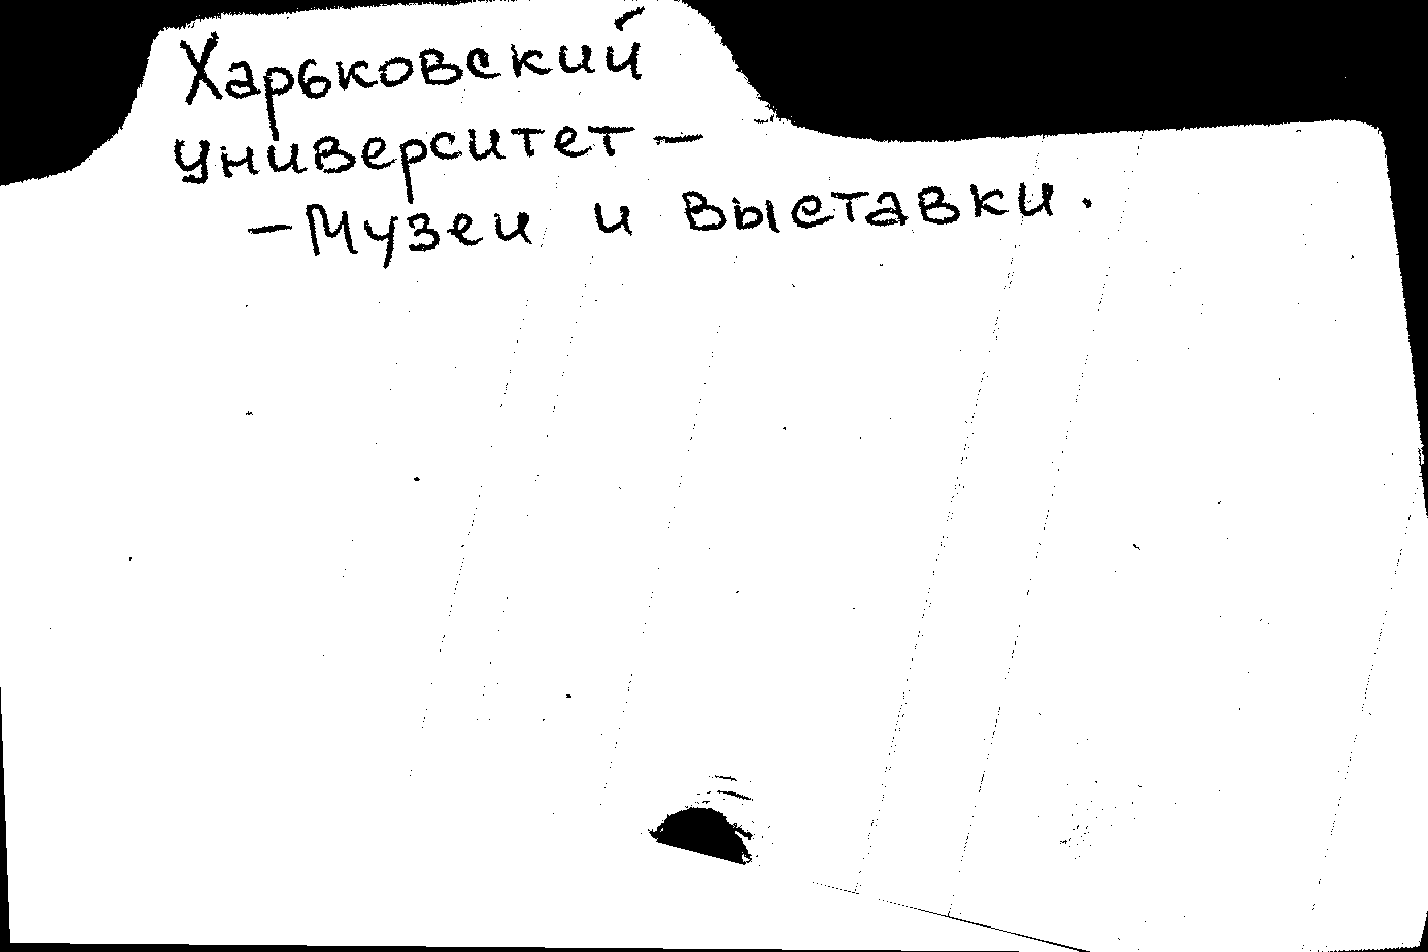 Харьковский
университет –
– Музеи и выставки.